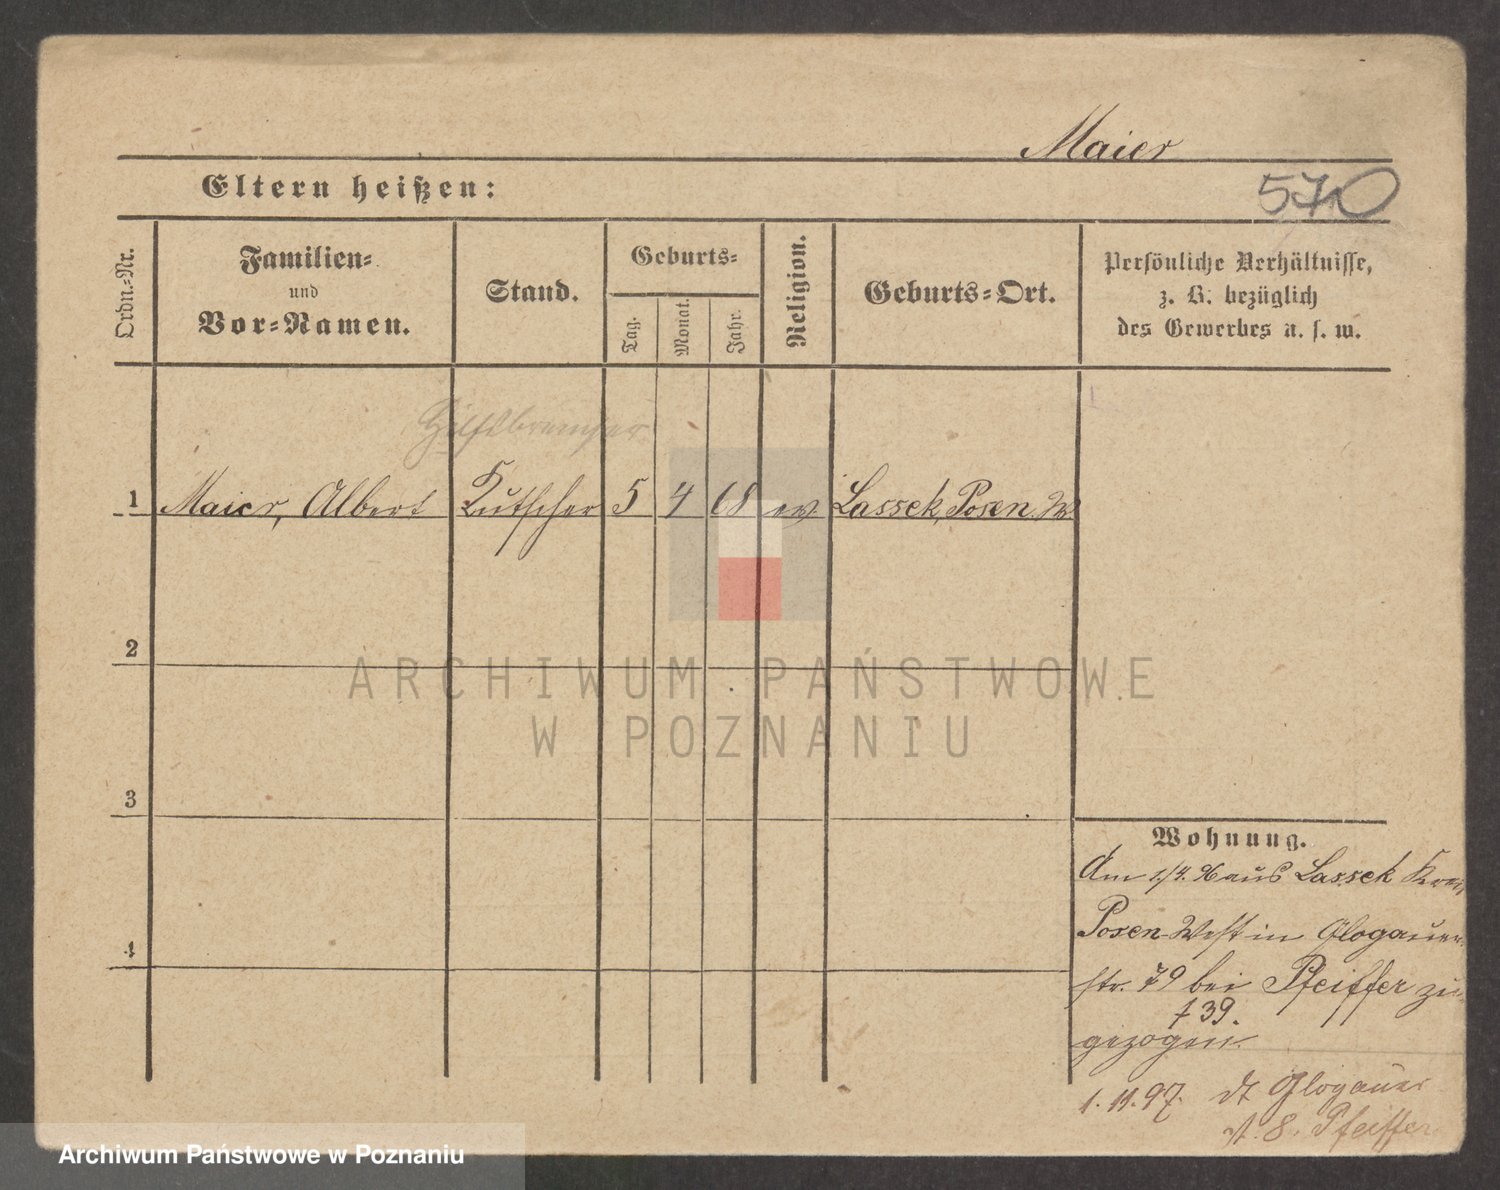 Maier
Eltern heißen:
570
Ordn.-Nr.
Familien-
und
Vor-Namen.
Stand.
Geburts-
Tag.
Monat.
Jahr.
Religion.
Geburts-Ort.
Persönliche Verhältnisse,
z. B. bezüglich
des Gewerbes u. s. w.
Hilfsbremser
1 Maier, Albert Kutscher 5 4 68 ev. Lassek, Posen W
2
3
4
Wohnung.
Am 1./4. 96 aus Lassek Kreis
Posen-West in Glogauer-
str. 79 bei Pfeiffer zu-
† 39.
gezogen.
1. 11. 97. dt Glogauer
st. 8. Pfeiffer
ARCHIWUM PAŃSTWOWE
W POZNANIU
Archiwum Państwowe w Poznaniu